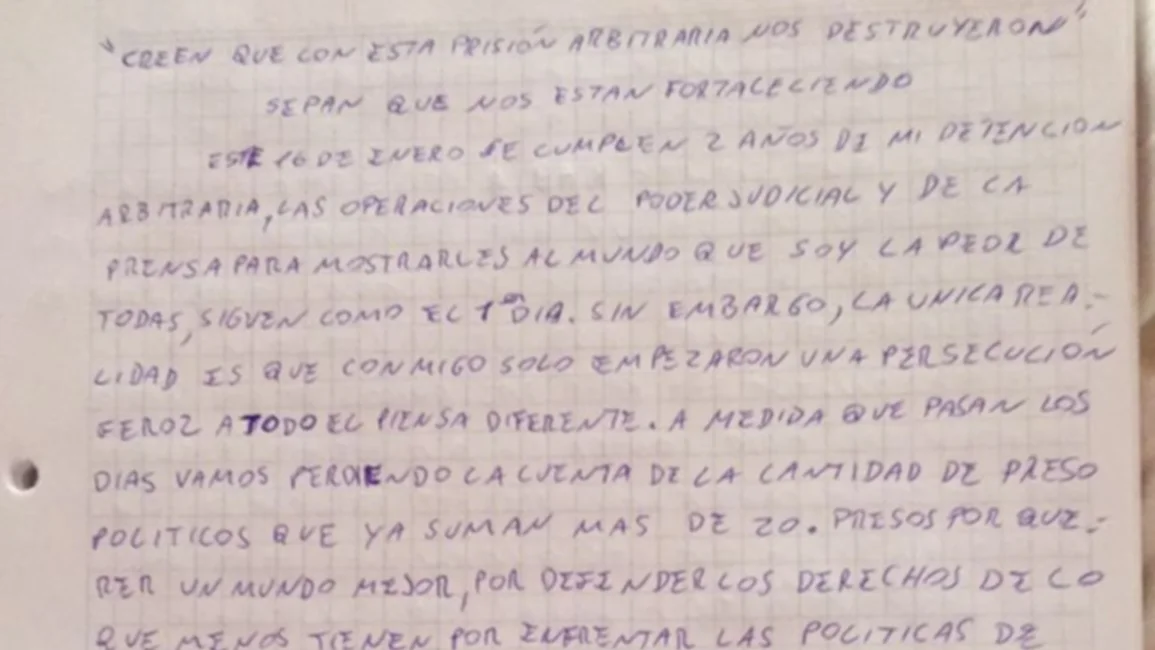 "CREEN QUE CON ESTA PRISIÓN ARBITRARIA NOS DESTRUYERON"
SEPAN QUE NOS ESTAN FORTALECIENDO
ESTE 16 DE ENERO SE CUMPLEN 2 AÑOS DE MI DETENCION
ARBITRARIA, LAS OPERACIONES DEL PODER JUDICIAL Y DE LA
PRENSA PARA MOSTRARLES AL MUNDO QUE SOY LA PEOR DE
TODAS, SIGUEN COMO EL 1ER DIA. SIN EMBARGO, LA UNICA REA.-
LIDAD ES QUE CONMIGO SOLO EMPEZARON UNA PERSECUCIÓN
FEROZ A TODO EL PIENSA DIFERENTE. A MEDIDA QUE PASAN LOS
DIAS VAMOS PERDIENDO LA CUENTA DE LA CANTIDAD DE PRESO
POLITICOS QUE YA SUMAN MAS DE 20. PRESOS POR QUE.-
RER UN MUNDO MEJOR, POR DEFENDER LOS DERECHOS DE LO
QUE MENOS TIENEN POR ENFRENTAR LAS POLITICAS DE